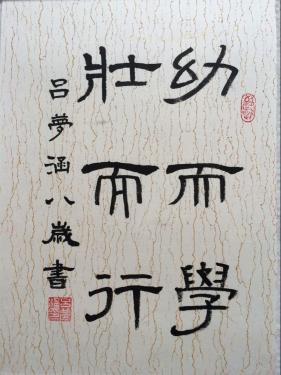 幼而學
壯而行
吕夢涵八歲書